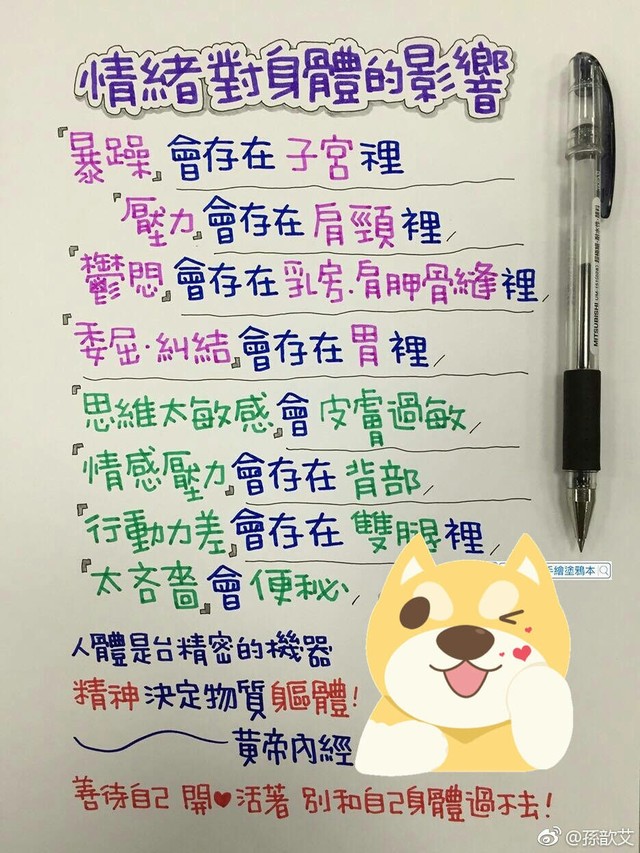 情緒對身體的影響
『暴躁』會存在子宮裡
『壓力』會存在肩頸裡
『鬱悶』會存在乳房.肩胛骨縫裡
『委屈·糾結』會存在胃裡
『思維太敏感』會皮膚過敏
『情感壓力』會存在背部
『行動力差』會存在雙腿裡
『太吝嗇』會便秘
人體是台精密的機器
精神決定物質軀體!
黃帝內經
善待自己 開♥活著 別和自己身體過不去!
手繪塗鴉本
MITSUBISHI
@孫歆艾